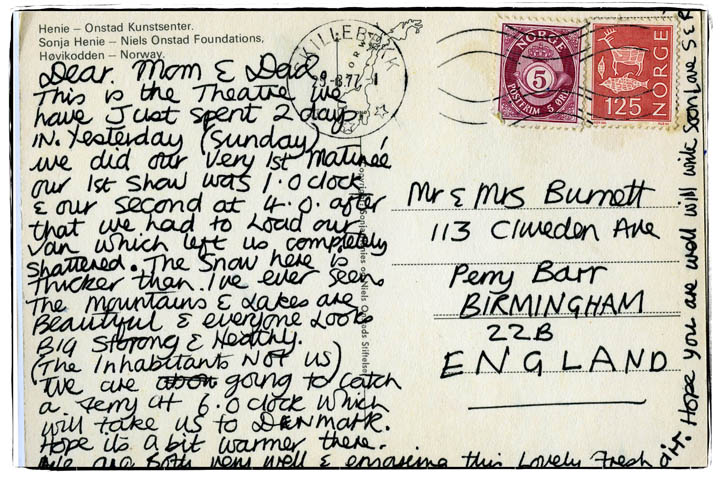 Henie – Onstad Kunstsenter.
Sonja Henie – Niels Onstad Foundations,
Høvikodden – Norway.
Dear. Mom & Dad
This is the Theatre we
have Just spent 2 days
IN. Yesterday (Sunday)
we did our very 1st Matineé
our 1st Show was 1.0 clock
& our second at 4.0. after
that we had to Load our
van which left us completely
shattered. The Snow here is
thicker then I've ever seen
The mountains & Lakes are
Beautiful & everyone Looks
BIG Strong & Healthy.
(The Inhabitants Not us)
We are going to catch
a ferry at 6.0 clock which
will take us to DENMARK.
Hope its a bit warmer there.
We are Both very well & enjoying this Lovely Fresh
air. Hope you are well will write Soon Love S & R
KILLEBEKK
NORGE
5
POSTFRIM 5 ØRE
NORGE
125
Mr & Mrs Burnett
113 Cliveden Ave
Perry Barr
BIRMINGHAM
22B
ENGLAND